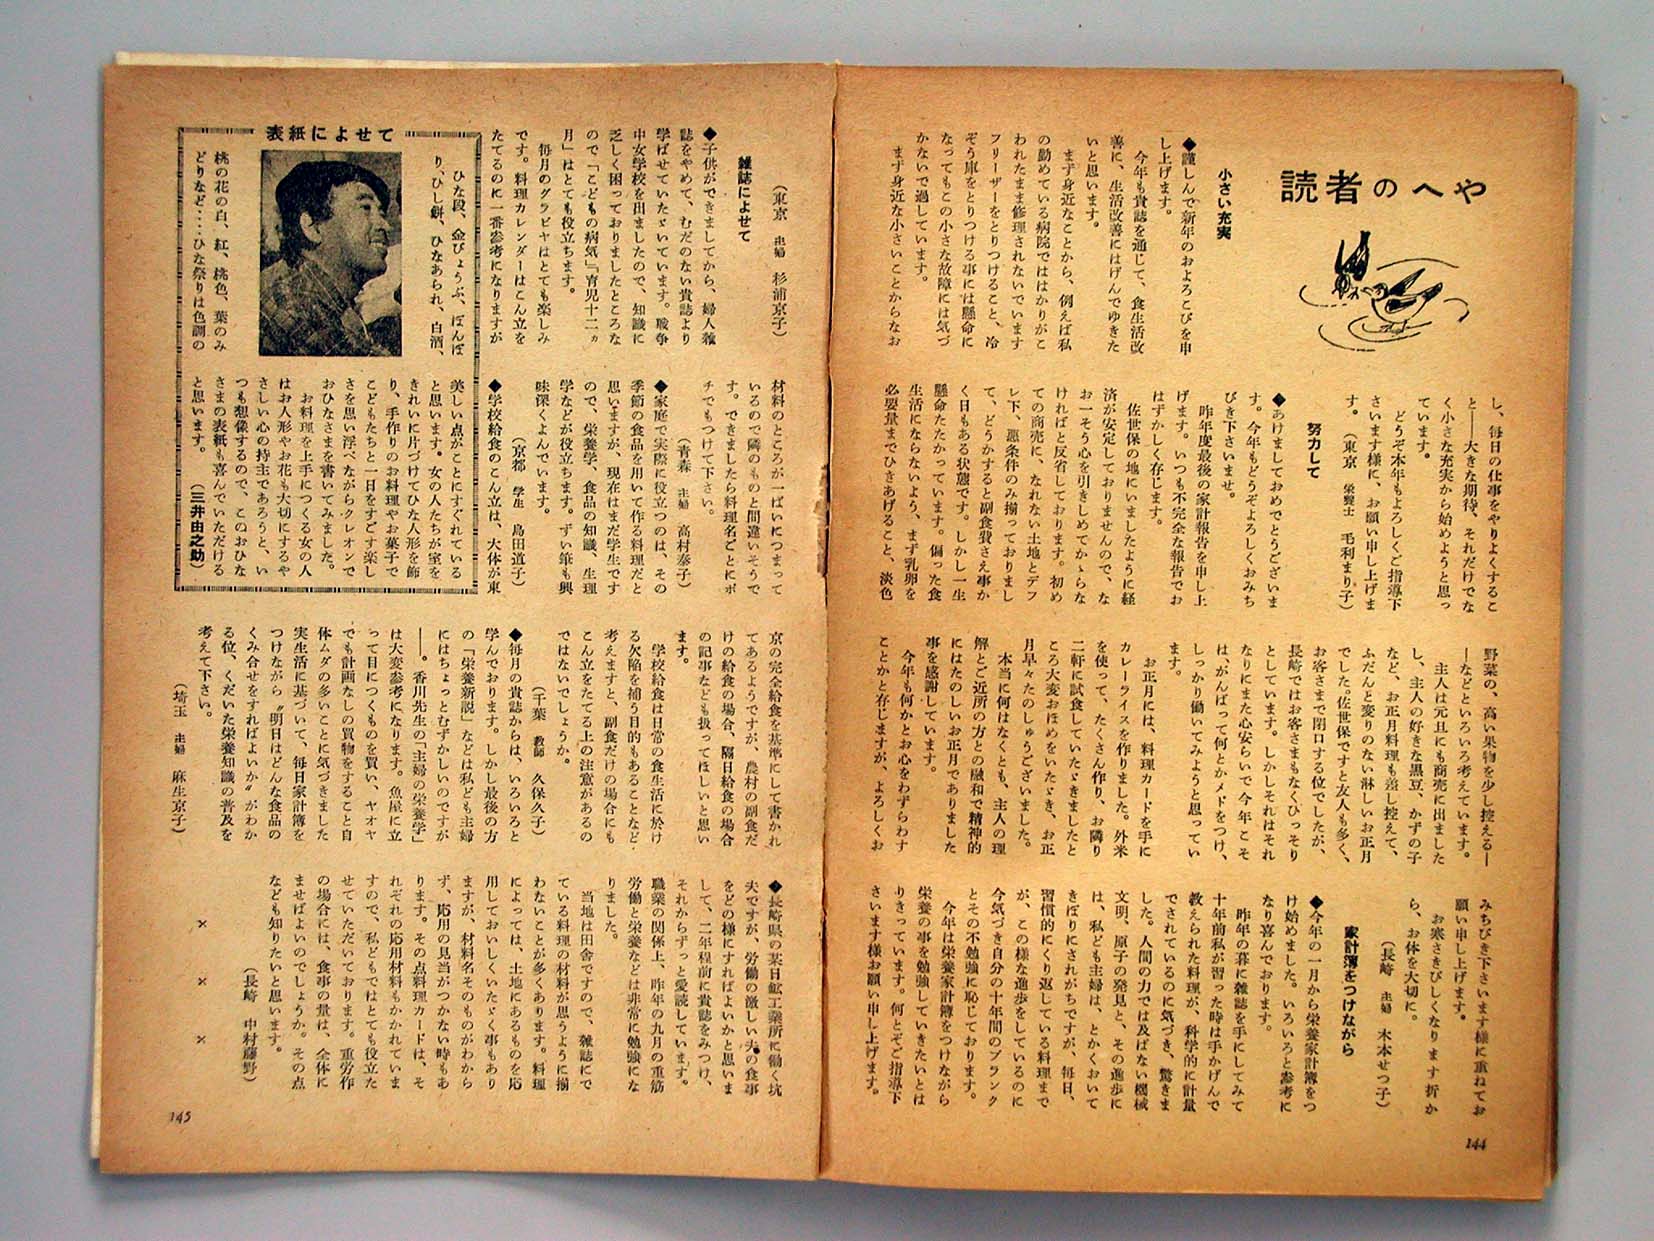 読者のへや
小さい充実
◆謹しんで新年のおよろこびを申
し上げます。
今年も貴誌を通じて、食生活改
善に、生活改善にはげんでゆきた
いと思います。
まず身近なことから、例えば私
の勤めている病院でははかりがこ
われたまま修理されないでいます
フリーザーをとりつけること、冷
ぞう庫をとりつける事には懸命に
なってもこの小さな故障には気づ
かないで過しています。
まず身近な小さいことからなお
し、毎日の仕事をやりよくするこ
と――大きな期待、それだけでな
く小さな充実から始めようと思っ
ています。
どうぞ本年もよろしくご指導下
さいます様に、お願い申し上げま
す。(東京 栄養士 毛利まり子)
努力して
◆あけましておめでとうございま
す。今年もどうぞよろしくおみち
びき下さいませ。
昨年度最後の家計報告を申し上
げます。いつも不完全な報告でお
はずかしく存じます。
佐世保の地にいましたように経
済が安定しておりませんので、な
お一そう心を引きしめてかゝらな
ければと反省しております。初め
ての商売に、なれない土地とデフ
レ下、悪条件のみ揃っておりまし
て、どうかすると副食費さえ事か
く日もある状態です。しかし一生
懸命たたかっています。偏った食
生活にならないよう、まず乳卵を
必要量までひきあげること、淡色
野菜の、高い果物を少し控える―
―などといろいろ考えています。
主人は元旦にも商売に出ました
し、主人の好きな黒豆、かずの子
など、お正月料理も差し控えて、
ふだんと変りのない淋しいお正月
でした。佐世保ですと友人も多く、
お客さまで閉口する位でしたが、
長崎ではお客さまもなくひっそり
としています。しかしそれはそれ
なりにまた心安らいで今年こそ
は、がんばって何とかメドをつけ、
しっかり働いてみようと思ってい
ます。
お正月には、料理カードを手に
カレーライスを作りました。外米
を使って、たくさん作り、お隣り
二軒に試食していたゞきましたと
ころ大変おほめをいたゞき、お正
月早々たのしゅうございました。
本当に何はなくとも、主人の理
解とご近所の方との融和で精神的
にはたのしいお正月でありました
事を感謝しています。
今年も何かとお心をわずらわす
ことかと存じますが、よろしくお
みちびき下さいます様に重ねてお
願い申し上げます。
お寒さきびしくなります折か
ら、お体を大切に。
(長崎 主婦 木本せつ子)
家計簿をつけながら
◆今年の一月から栄養家計簿をつ
け始めました。いろいろと参考に
なり喜んでおります。
昨年の暮に雑誌を手にしてみて
十年前私が習った時は手かげんで
教えられた料理が、科学的に計量
でされているのに気づき、驚きま
した。人間の力では及ばない機械
文明、原子の発見と、その進歩に
は、私ども主婦は、とかくおいて
きぼりにされがちですが、毎日、
習慣的にくり返している料理まで
が、この様な進歩をしているのに
今気づき自分の十年間のブランク
とその不勉強に恥じております。
今年は栄養家計簿をつけながら
栄養の事を勉強していきたいとは
りきっています。何とぞご指導下
さいます様お願い申し上げます。
144
(東京 主婦 杉浦京子)
雑誌によせて
◆子供ができましてから、婦人雑
誌をやめて、むだのない貴誌より
学ばせていたゞいています。戦争
中女学校を出ましたので、知識に
乏しく困っておりましたところな
ので「こどもの病気」「育児十二ヵ
月」はとても役立ちます。
毎月のグラビヤはとても楽しみ
です。料理カレンダーはこん立を
たてるのに一番参考になりますが
材料のところが一ぱいにつまって
いるので隣のものと間違いそうで
す。できましたら料理名ごとにポ
チでもつけて下さい。
(青森 主婦 高村泰子)
◆家庭で実際に役立つのは、その
季節の食品を用いて作る料理だと
思いますが、現在はまだ学生です
ので、栄養学、食品の知識、生理
学などが役立ちます。ずい筆も興
味深くよんでいます。
(京都 学生 島田道子)
◆学校給食のこん立は、大体が東
京の完全給食を基準にして書かれ
てあるようですが、農村の副食だ
けの給食の場合、隔日給食の場合
の記事なども扱ってほしいと思い
ます。
学校給食は日常の食生活に於け
る欠陥を補う目的もあることなど
考えますと、副食だけの場合にも
こん立をたてる上の注意があるの
ではないでしょうか。
(千葉 教師 久保久子)
◆毎月の貴誌からは、いろいろと
学んでおります。しかし最後の方
の「栄養新説」などは私ども主婦
にはちょっとむずかしいのですが
――。香川先生の「主婦の栄養学」
は大変参考になります。魚屋に立
って目につくものを買い、ヤオヤ
でも計画なしの買物をすること自
体ムダの多いことに気づきました
実生活に基づいて、毎日家計簿を
つけながら〝明日はどんな食品の
くみ合せをすればよいか〟がわか
る位、くだいた栄養知識の普及を
考えて下さい。
(埼玉 主婦 麻生京子)
◆長崎県の某日鉱工業所に働く坑
夫ですが、労働の激しい夫の食事
をどの様にすればよいかと思いま
して、二年程前に貴誌をみつけ、
それからずっと愛読しています。
職業の関係上、昨年の九月の重筋
労働と栄養などは非常に勉強にな
りました。
当地は田舎ですので、雑誌にで
ている料理の材料が思うように揃
わないことが多くあります。料理
によっては、土地にあるものを応
用しておいしくいたゞく事もあり
ますが、材料名そのものがわから
ず、応用の見当がつかない時もあ
ります。その点料理カードは、そ
れぞれの応用材料もかかれていま
すので、私どもではとても役立た
せていただいております。重労作
の場合には、食事の量は、全体に
ませばよいのでしょうか。その点
なども知りたいと思います。
(長崎 中村藤野)
× × ×
表紙によせて
ひな段、金びょうぶ、ぼんぼ
り、ひし餅、ひなあられ、白酒、
桃の花の白、紅、桃色、葉のみ
どりなど……ひな祭りは色調の
美しい点がことにすぐれている
と思います。女の人たちが室を
きれいに片づけてひな人形を飾
り、手作りのお料理やお菓子で
こどもたちと一日をすごす楽し
さを思い浮べながらクレオンで
おひなさまを書いてみました。
お料理を上手につくる女の人
はお人形やお花も大切にするや
さしい心の持主であろうと、い
つも想像するので、このおひな
さまの表紙も喜んでいただける
と思います。 (三井由之助)
145